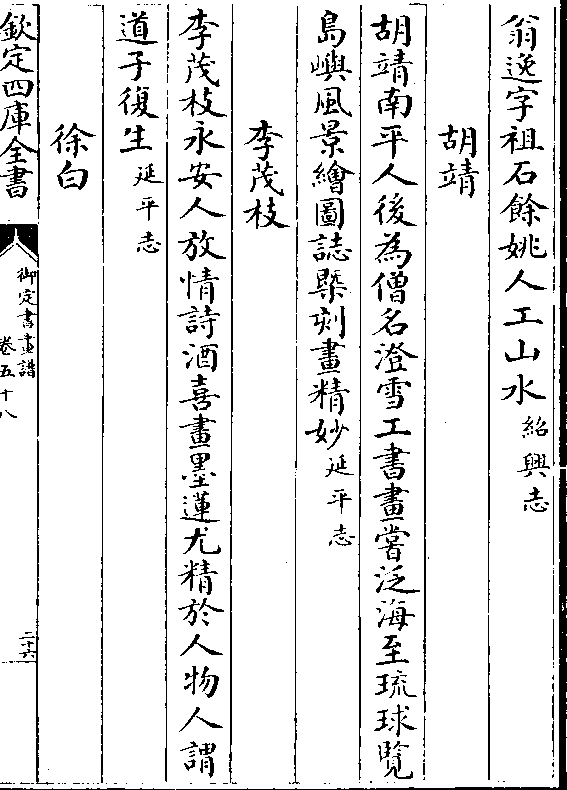 翁逸字祖石餘姚人工山水紹興志
胡靖
胡靖南平人後為僧名澄雪工書畫嘗泛海至琉球覽
島嶼風景繪圖誌槩刻畫精妙延平志
李茂枝
李茂枝永安人放情詩酒喜畫墨蓮尤精於人物人謂
道子復生延平志
徐白
欽定四庫全書
御定書畫譜
卷五十八
二十六